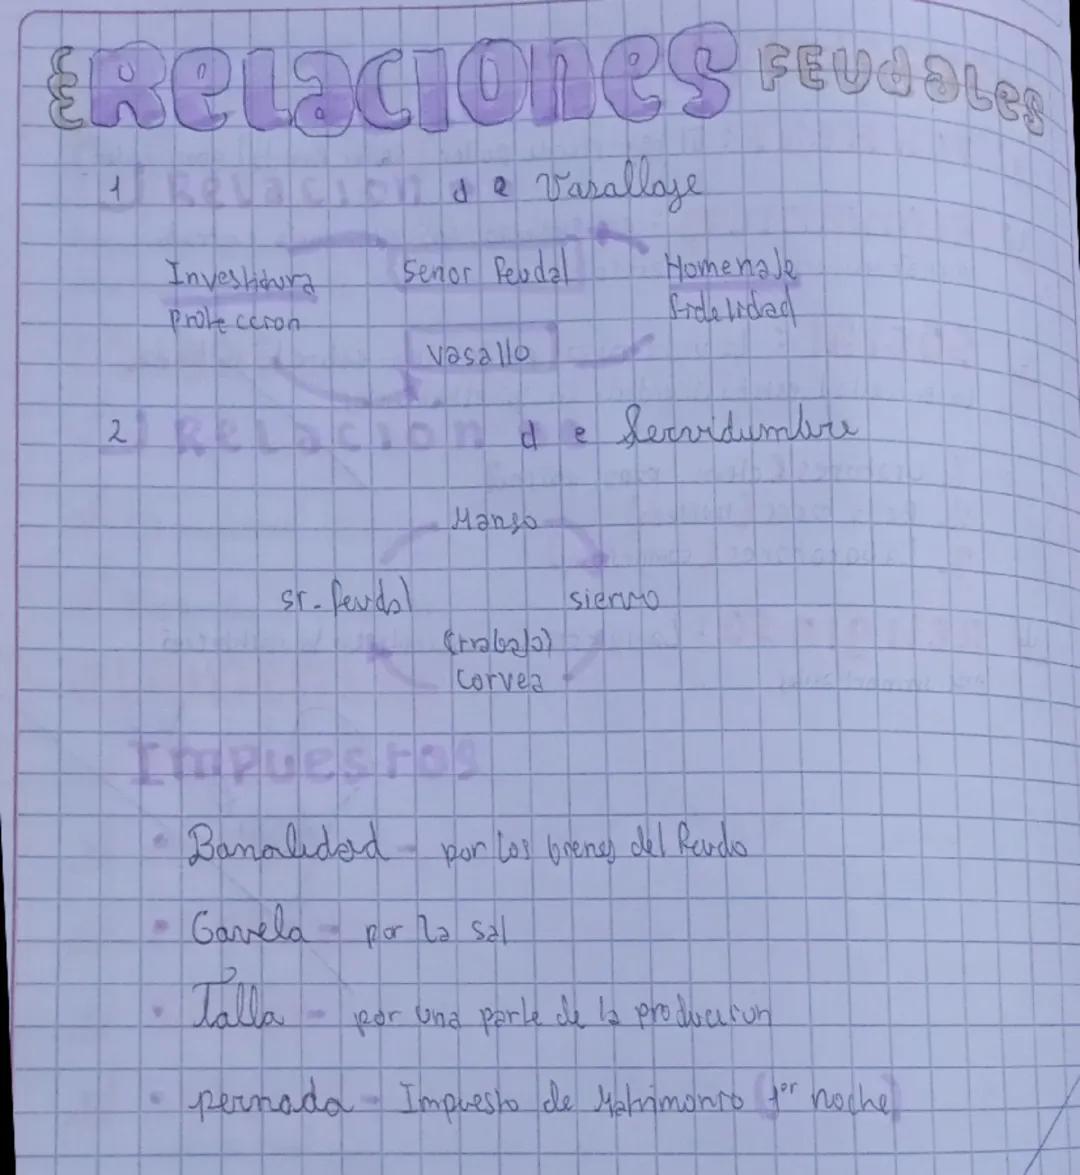 Relaciones FEUdales
1 Relacion de Vasallaje
Investidura Senor feudal Homenaje
Proteccion fidelidad
vasallo
2 Relacion de Servidumbre
Manso
sr. feudal siervo
(trabajo)
Corvea
Impuestos
Banalidad - por los bienes del feudo
Gavela - por la sal
Talla - por una parte de la produccion
pernada - Impuesto de Matrimonio 1er noche